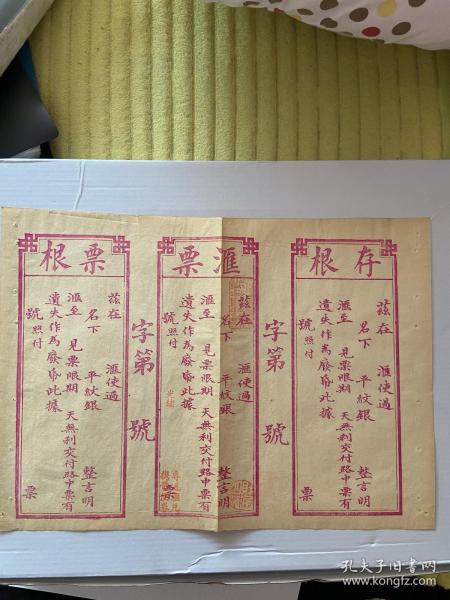 存根
茲在 滙使過
名下 平紋銀 整言明
滙至 見票限期 天無利交付路中票有
遺失作為廢帋此據
號照付
票
字第 號
滙票
茲在 滙使過
名下 平紋銀 整言明
滙至 見票限期 天無利交付路中票有
遺失作為廢帋此據
號照付
光緒
票
字第 號
票根
茲在 滙使過
名下 平紋銀 整言明
滙至 見票限期 天無利交付路中票有
遺失作為廢帋此據
號照付
票
孔夫子旧书网
www.kongfz.com